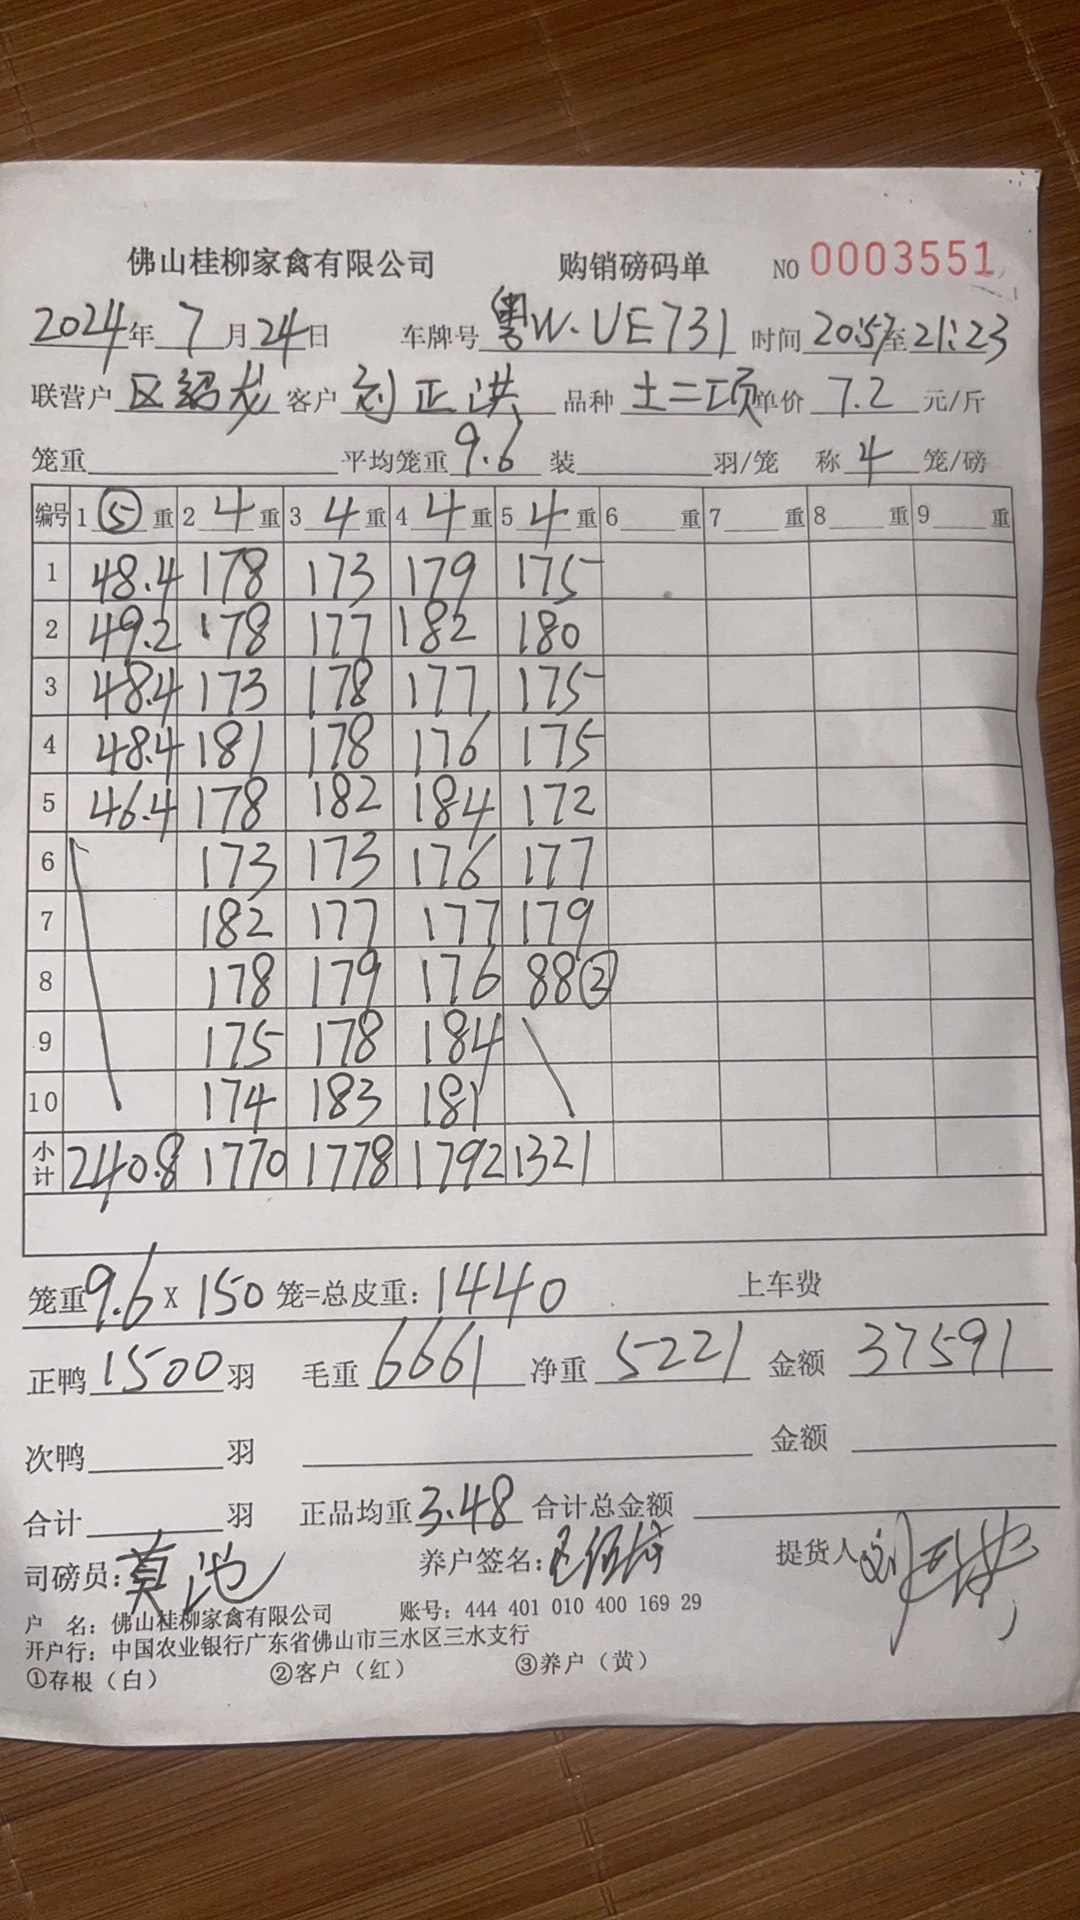 佛山桂柳家禽有限公司 购销磅码单 NO 0003551
2024年 7月24日 车牌号 粤W·UE731 时间 20:57至21:23
联营户 区绍龙 客户 刘正洪 品种 土二项 单价 7.2 元/斤
笼重 平均笼重 9.6 装 羽/笼 称 4 笼/磅
编号 1 ⑤ 重 2 4 重 3 4 重 4 4 重 5 4 重 6 重 7 重 8 重 9 重
1 48.4 178 173 179 175
2 49.2 178 177 182 180
3 48.4 173 178 177 175
4 48.4 181 178 176 175
5 46.4 178 182 184 172
6 173 173 176 177
7 182 177 177 179
8 178 179 176 88②
9 175 178 184
10 174 183 181
小计 240.8 1770 1778 1792 1321
笼重9.6 X 150 笼=总皮重：1440 上车费
正鸭 1500 羽 毛重 6661 净重 5221 金额 37591
次鸭 羽 金额
合计 羽 正品均重 3.48 合计总金额
司磅员：莫池 养户签名： 提货人 刘正洪
户 名：佛山桂柳家禽有限公司 账号：444 401 010 400 169 29
开户行：中国农业银行广东省佛山市三水区三水支行
①存根（白） ②客户（红） ③养户（黄）